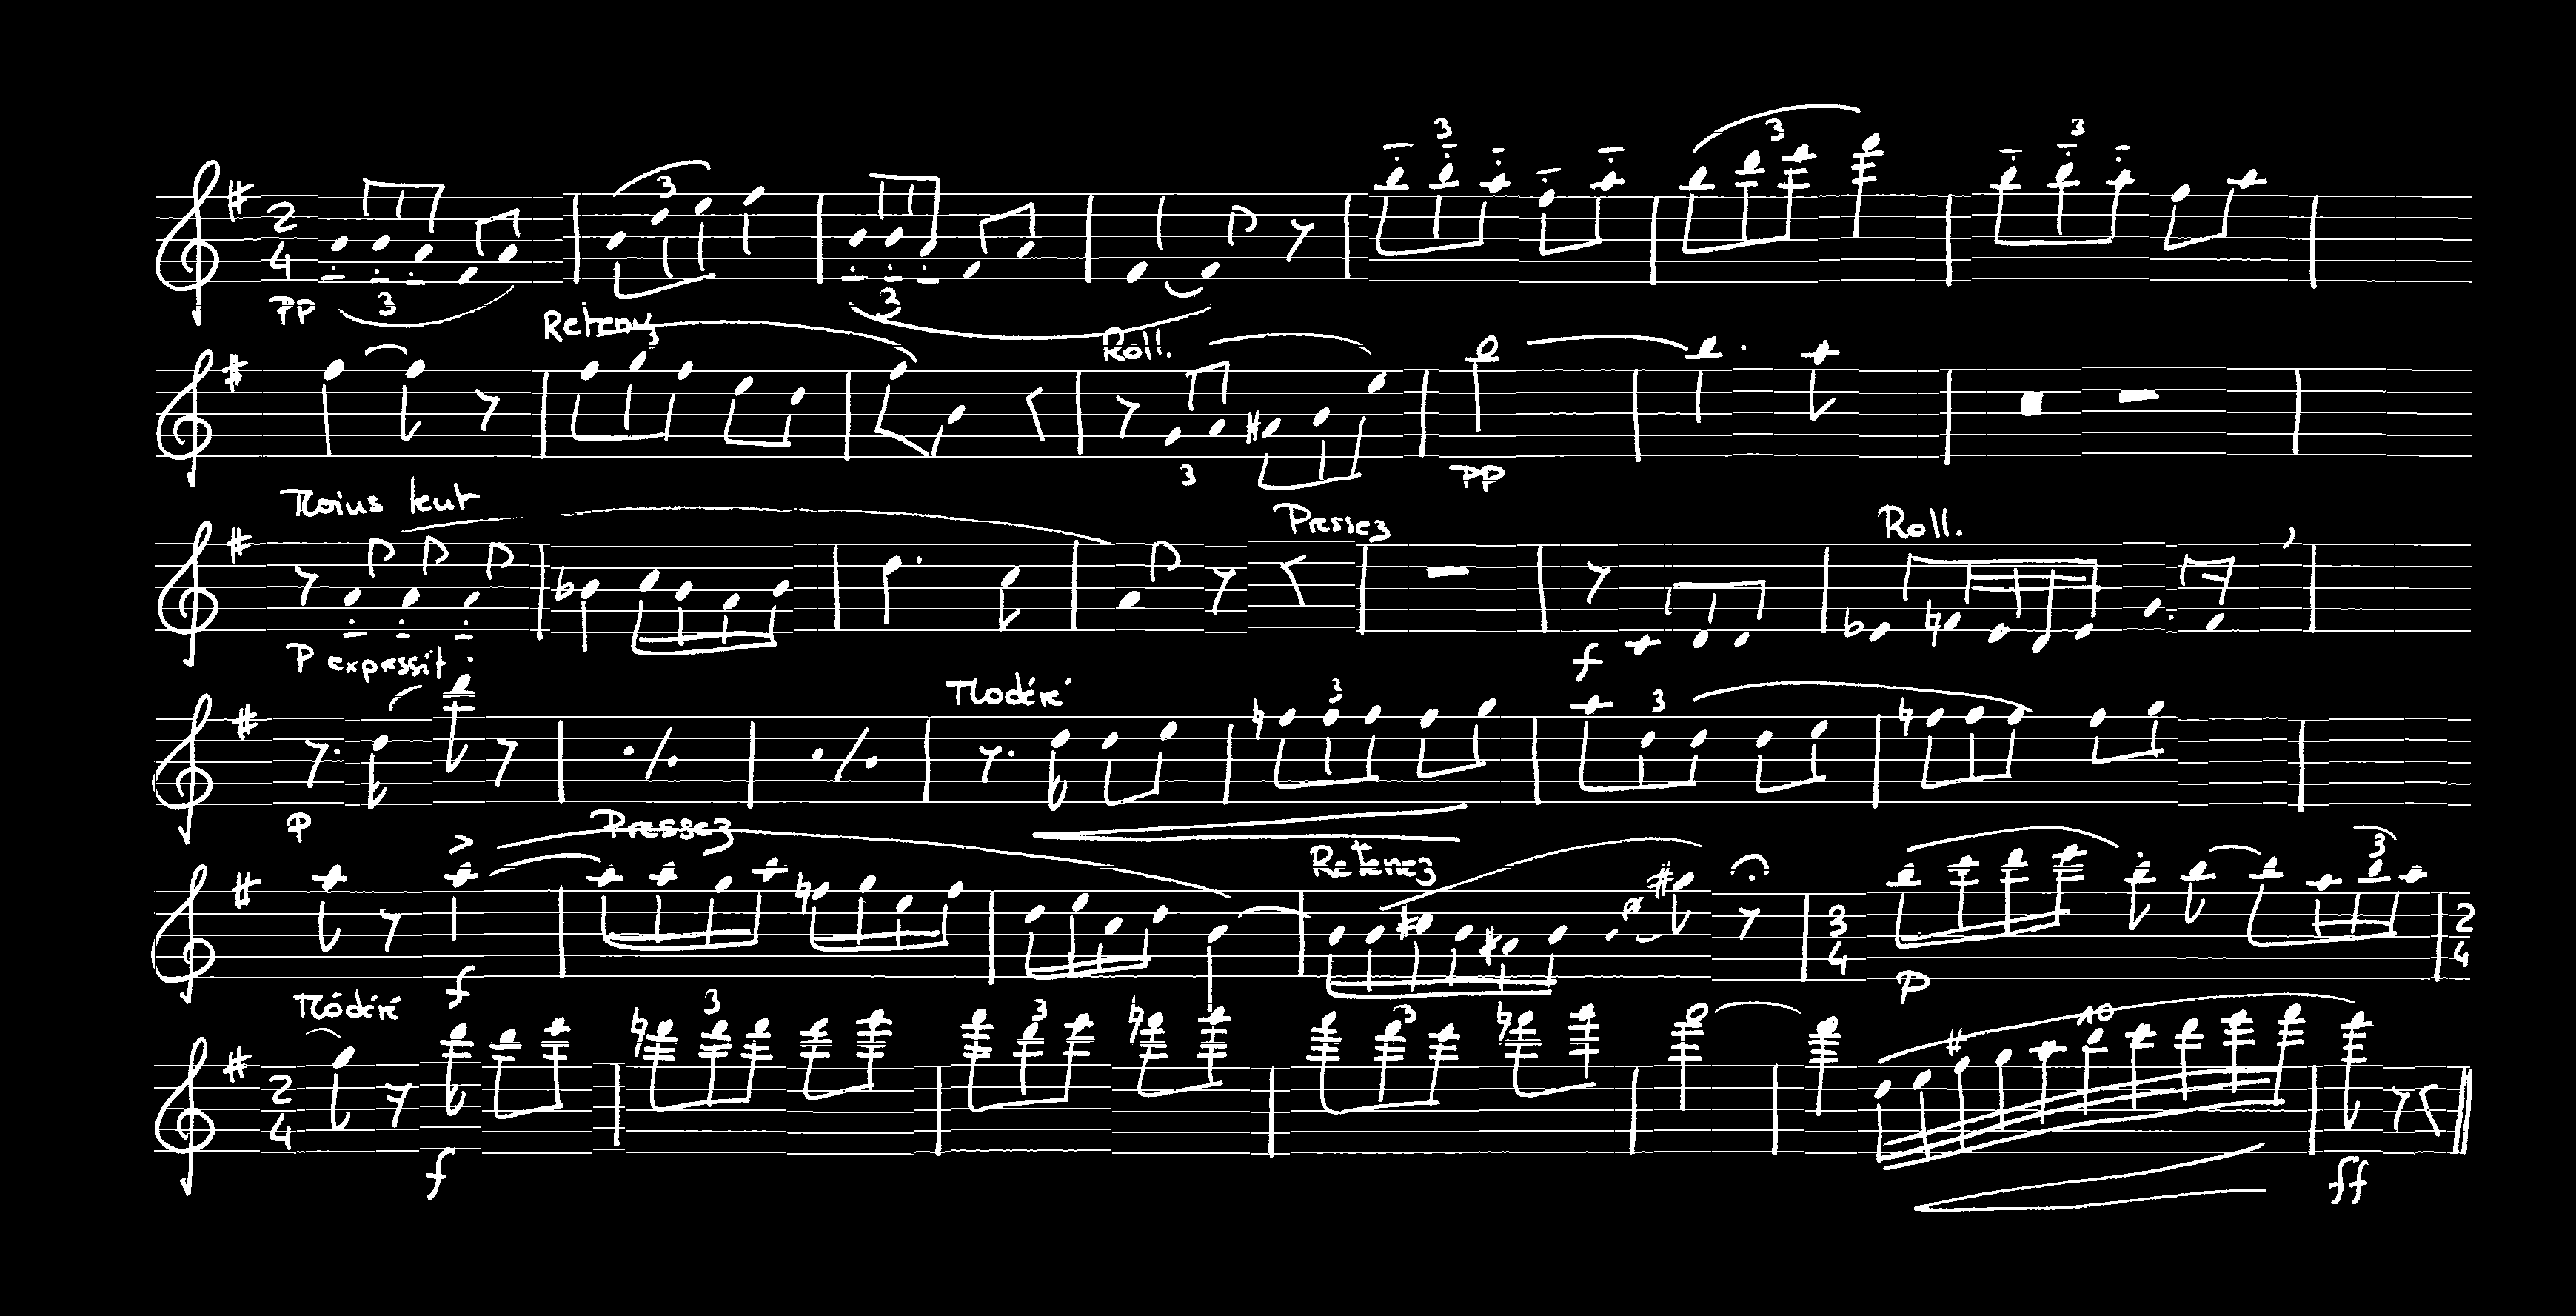 3 3
2 4 3 3 3
PP
Retenu 3 Roll.
3 PP
Moins lent Pressez Roll.
P expressif f
Modéré 3 3
P Pressez
Retenez 3
3 4 2 4
f P
Modéré 3 3 3 10
2 4
f ff